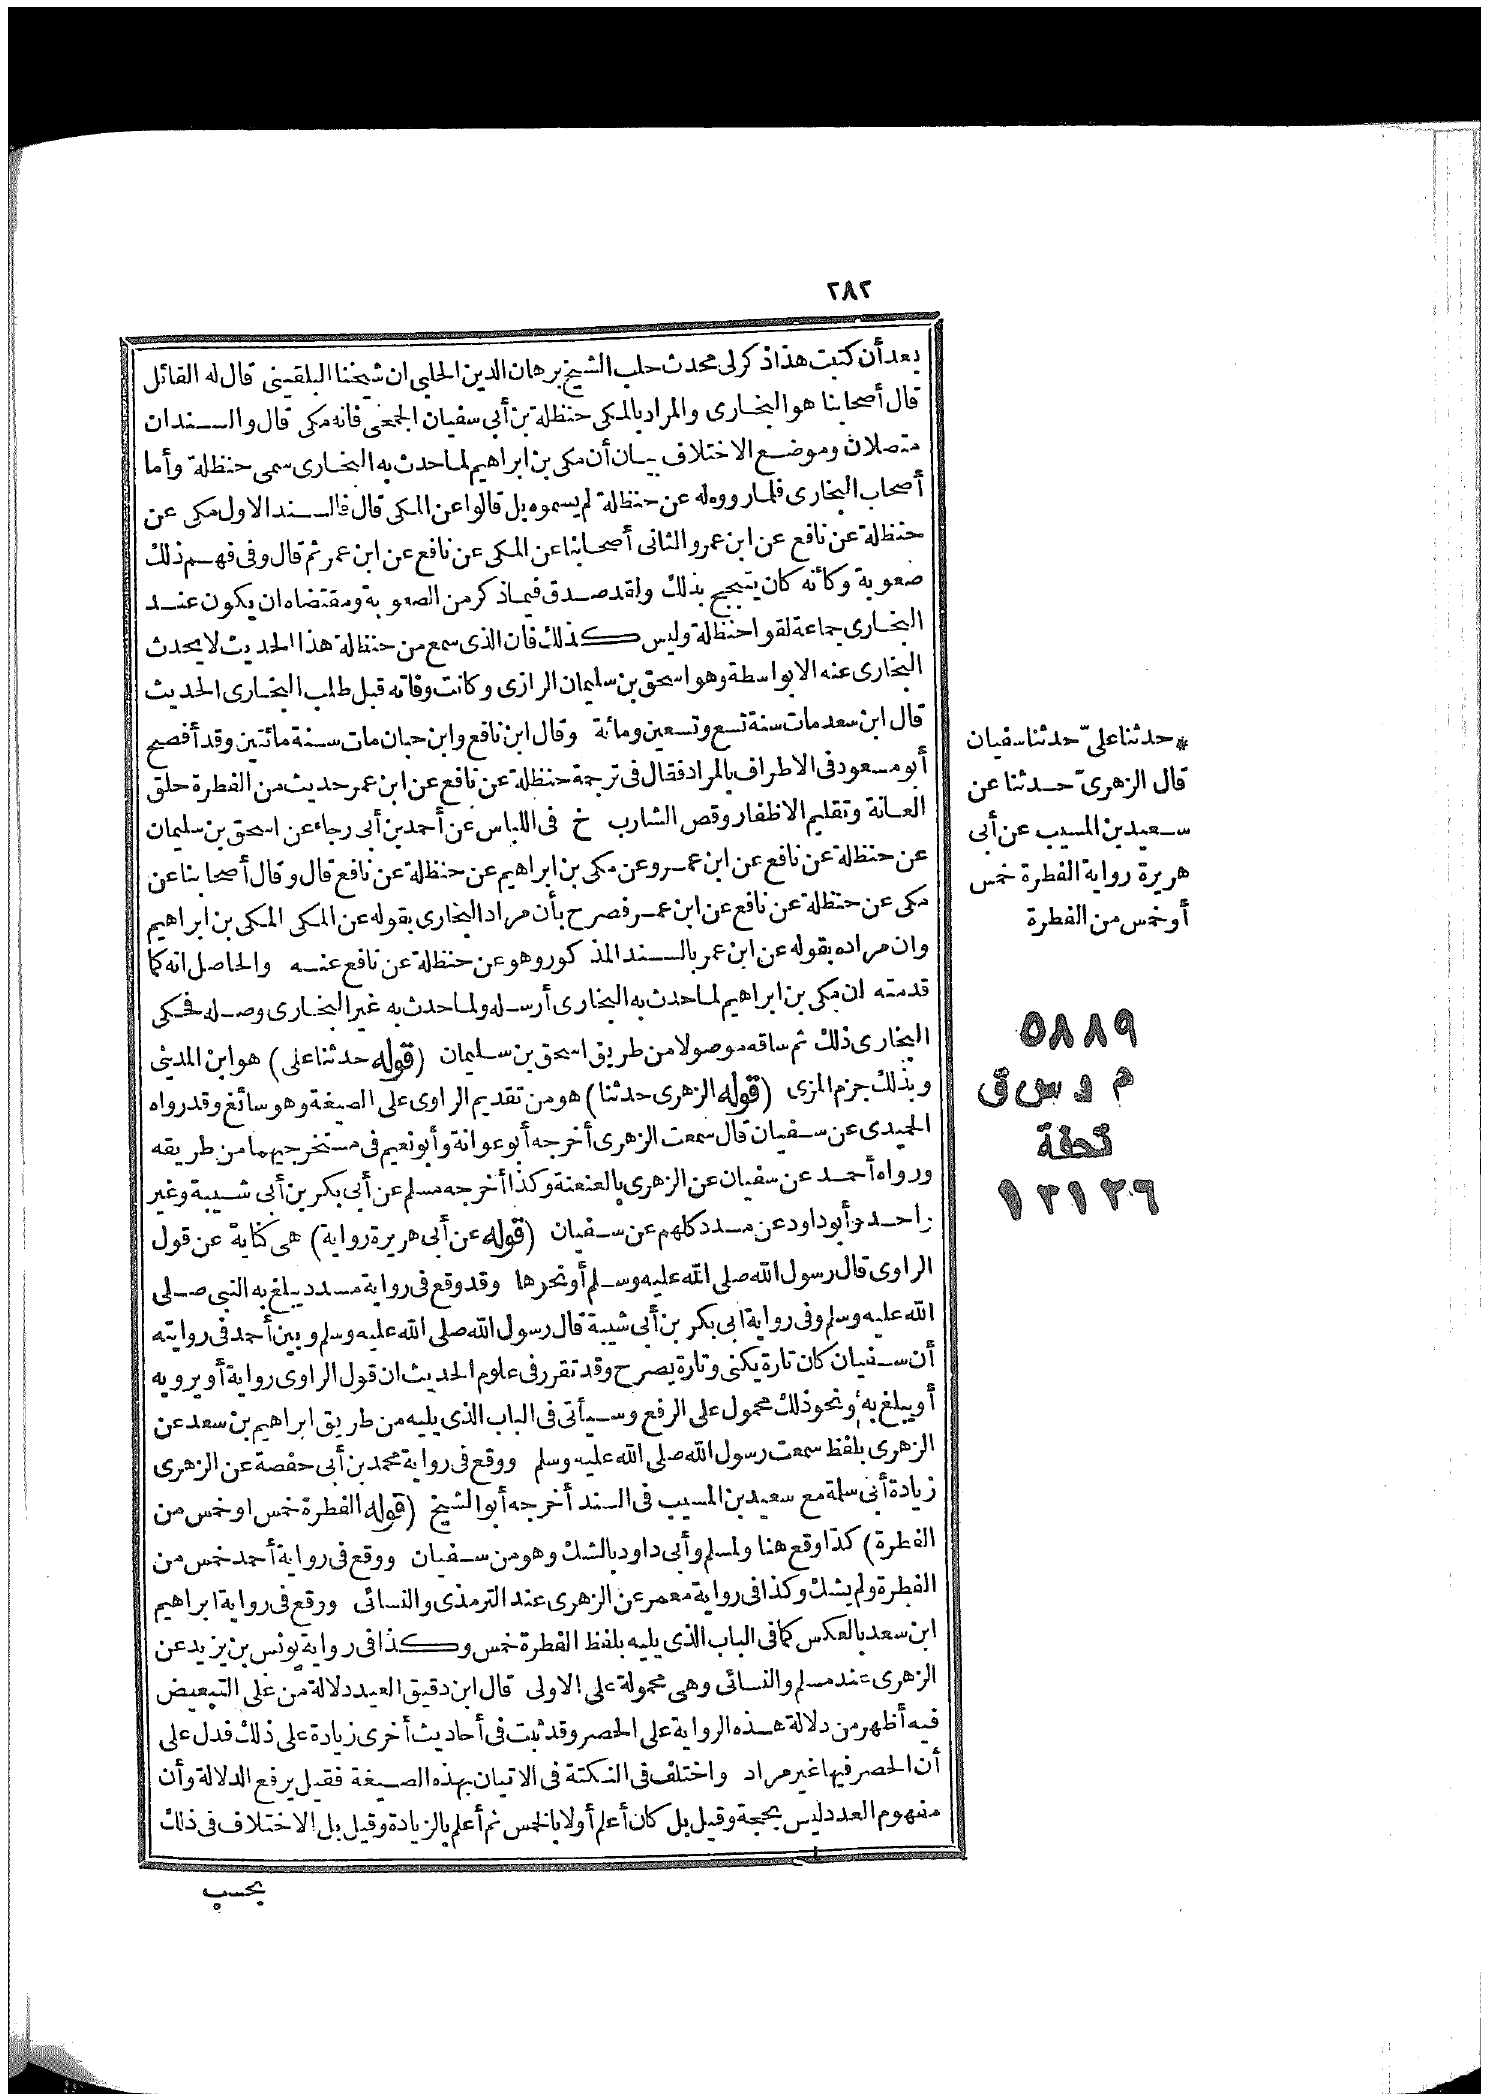 ٢٨٢
بعد أن كتبت هذا ذكر لى محدث حلب الشيخ برهان الدين الحلبى ان شيخنا البلقينى قال له القائل
قال أصحابنا هو البخارى والمراد بالمكى حنظلة بن أبى سفيان الجمحى فانه مكى قال والسندان
متصلان وموضع الاختلاف بيان أن مكى بن ابراهيم لما حدث به البخارى سمى حنظلة وأما
أصحاب البخارى فلما رووه له عن حنظلة لم يسموه بل قالوا عن المكى قال فالسند الاول مكى عن
حنظلة عن نافع عن ابن عمر والثانى أصحابنا عن المكى عن نافع عن ابن عمر ثم قال وفى فهم ذلك
صعوبة وكأنه كان يتبجح بذلك ولقد صدق فيما ذكر من الصعوبة ومقتضاه ان يكون عند
البخارى جماعة لقوا حنظلة وليس كذلك فان الذى سمع من حنظلة هذا الحديث لا يحدث
البخارى عنه الا بواسطة وهو اسحق بن سليمان الرازى وكانت وفاته قبل طلب البخارى الحديث
قال ابن سعد مات سنة تسع وتسعين ومائة وقال ابن نافع وابن حبان مات سنة مائتين وقد أفصح
أبو مسعود فى الاطراف بالمراد فقال فى ترجمة حنظلة عن نافع عن ابن عمر حديث من الفطرة حلق
العانة وتقليم الاظفار وقص الشارب خ فى اللباس عن أحمد بن أبى رجاء عن اسحق بن سليمان
عن حنظلة عن نافع عن ابن عمر وعن مكى بن ابراهيم عن حنظلة عن نافع قال وقال أصحابنا عن
مكى عن حنظلة عن نافع عن ابن عمر فصرح بأن مراد البخارى بقوله عن المكى المكى بن ابراهيم
وان مراده بقوله عن ابن عمر بالسند المذكور وهو عن حنظلة عن نافع عنه والحاصل انه كما
قدمته ان مكى بن ابراهيم لما حدث به البخارى أرسله ولما حدث به غير البخارى وصله فحكى
البخارى ذلك ثم ساقه موصولا من طريق اسحق بن سليمان (قوله حدثنا على) هو ابن المدينى
وبذلك جزم المزى (قوله الزهرى حدثنا) هو من تقديم الراوى على الصيغة وهو سائغ وقد رواه
الحميدى عن سفيان قال سمعت الزهرى أخرجه أبو عوانة وأبو نعيم فى مستخرجيهما من طريقه
ورواه أحمد عن سفيان عن الزهرى بالعنعنة وكذا أخرجه مسلم عن أبى بكر بن أبى شيبة وغير
واحد وأبو داود عن مسدد كلهم عن سفيان (قوله عن أبى هريرة رواية) هى كناية عن قول
الراوى قال رسول الله صلى الله عليه وسلم أو نحوها وقد وقع فى رواية مسدد يبلغ به النبى صلى
الله عليه وسلم وفى رواية ابى بكر بن أبى شيبة قال رسول الله صلى الله عليه وسلم وبين أحمد فى روايته
أن سفيان كان تارة يكنى وتارة يصرح وقد تقرر فى علوم الحديث ان قول الراوى رواية أو يرويه
أو يبلغ به ونحو ذلك محمول على الرفع وسيأتى فى الباب الذى يليه من طريق ابراهيم بن سعد عن
الزهرى بلفظ سمعت رسول الله صلى الله عليه وسلم ووقع فى رواية محمد بن أبى حفصة عن الزهرى
زيادة أبى سلمة مع سعيد بن المسيب فى السند أخرجه أبو الشيخ (قوله الفطرة خمس او خمس من
الفطرة) كذا وقع هنا ولمسلم وأبى داود بالشك وهو من سفيان ووقع فى رواية أحمد خمس من
الفطرة ولم يشك وكذا فى رواية معمر عن الزهرى عند الترمذى والنسائى ووقع فى رواية ابراهيم
ابن سعد بالعكس كما فى الباب الذى يليه بلفظ الفطرة خمس وكذا فى رواية يونس بن يزيد عن
الزهرى عند مسلم والنسائى وهى محمولة على الاولى قال ابن دقيق العيد دلالة من على التبعيض
فيه أظهر من دلالة هذه الرواية على الحصر وقد ثبت فى أحاديث أخرى زيادة على ذلك فدل على
أن الحصر فيها غير مراد واختلف فى النكتة فى الاتيان بهذه الصيغة فقيل برفع الدلالة وأن
مفهوم العدد ليس بحجة وقيل بل كان أعلم أولا بالخمس ثم أعلم بالزيادة وقيل بل الاختلاف فى ذلك
بحسب
* حدثنا علىّ حدثنا سفيان
قال الزهرىّ حدثنا عن
سعيد بن المسيب عن أبى
هريرة رواية الفطرة خمس
أو خمس من الفطرة
٥٨٨٩
م د س ق
تحفة
١٣١٢٦